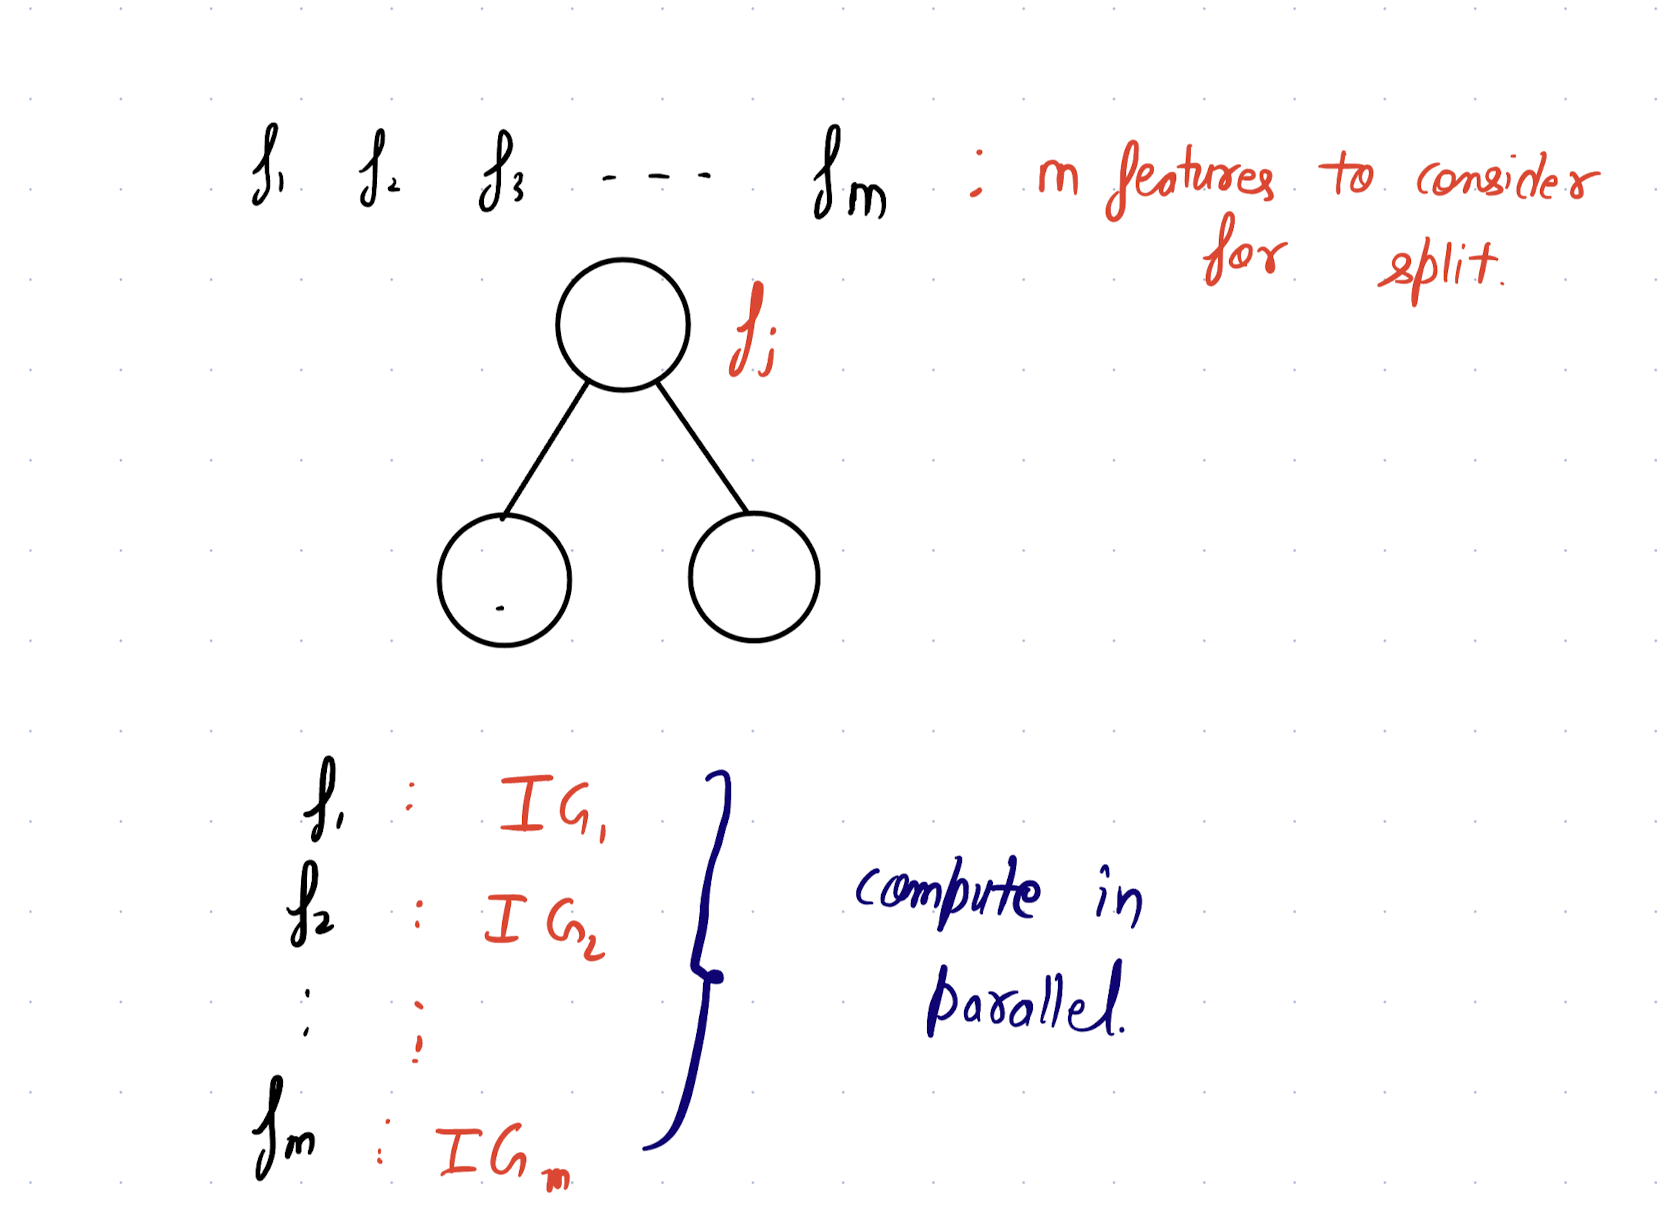 f₁ f₂ f₃ ---- fₘ : m features to consider
for split.
fⱼ
f₁ : IG₁
f₂ : IG₂
: :
fₘ : IGₘ
compute in
parallel.